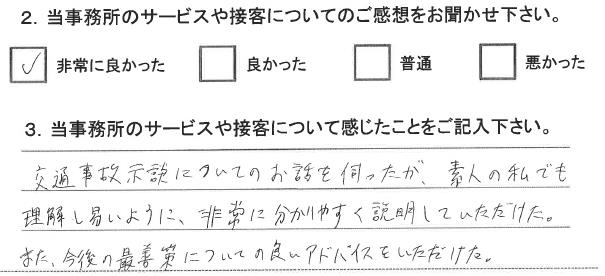 2．当事務所のサービスや接客についてのご感想をお聞かせ下さい。
✓ 非常に良かった 良かった 普通 悪かった
3．当事務所のサービスや接客について感じたことをご記入下さい。
交通事故示談についてのお話を伺ったが、素人の私でも
理解し易いように、非常に分かりやすく説明していただけた。
また、今後の最善策についての良いアドバイスをいただけた。